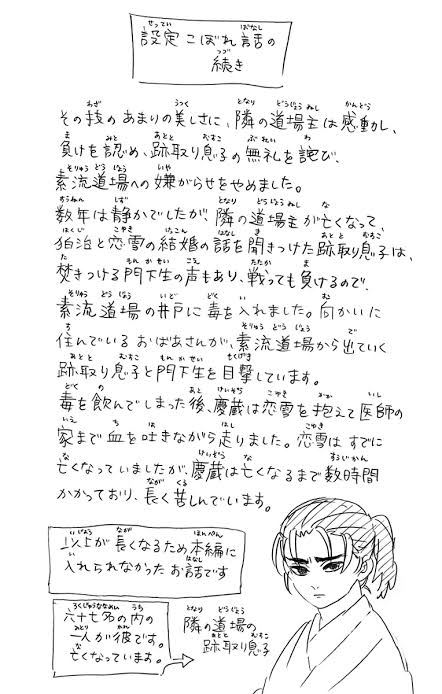 設定こぼれ話の
続き
その技のあまりの美しさに、隣の道場主は感動し、
負けを認め、跡取り息子の無礼を詫び、
素流道場への嫌がらせをやめました。
数年は静かでしたが、隣の道場主が亡くなって、
狛治と恋雪の結婚の話を聞きつけた跡取り息子は、
焚きつける門下生の声もあり、戦っても負けるので、
素流道場の井戸に毒を入れました。向かいに
住んでいるおばあさんが、素流道場から出ていく
跡取り息子と門下生を目撃しています。
毒を飲んでしまった後、慶蔵は恋雪を抱えて医師の
家まで血を吐きながら走りました。恋雪はすでに
亡くなっていましたが、慶蔵は亡くなるまで数時間
かかっており、長く苦しんでいます。
以上が長くなるため本編に
入れられなかったお話です
六十七名の内の
一人が彼です。
亡くなっています。
隣の道場の
跡取り息子